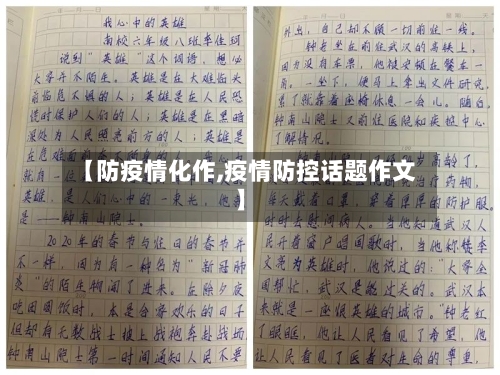 我心中的英雄
南校六年级八班李佳珂
说到"英雄"这个词语，想必
大家并不陌生。英雄是在大难临头
前临危不惧的人；英雄是在人民恐
慌时保护人们的人；英雄是在黑暗
深处为人民照亮前方的人；英雄是
在危难面前
就自一位
英雄，是人们心中的一束光，他就
是——钟南山院士。
2020年的春节与往日的春节并
不一样，因为有一种名为"新冠肺
炎"的陌生物闯了进来。在除夕夜
吃团圆饭时，本是合家欢乐的日子
但却有无数战士披上战袍奔赴战场
钟南山院士第一时间通知人民不要
外出，自己却不顾一切前往一线。
钟老坐在前往武汉的高铁上，
因为没有车票，他被安顿在餐车一
角。一坐下，便马上拿出文件研究，
累了就靠着座椅休息一会儿。随后，
钟院士又前往医院和疾控中心
了解情况。
高龄了，
治疗药物，
每天戴着口罩，穿着厚厚的防护服，
时时去慰问病人。当他知道武汉人
民开着窗户唱国歌时，当他称赞李
文亮为英雄时，他说过的："大家全
国帮忙，武汉是能过关的。武汉本
来就是一座很英雄的城市。"钟老红
了眼眶，他让人民看见了希望，他
让人民看见了医者对生命的尊重，
【防疫情化作,疫情防控话题作文
】